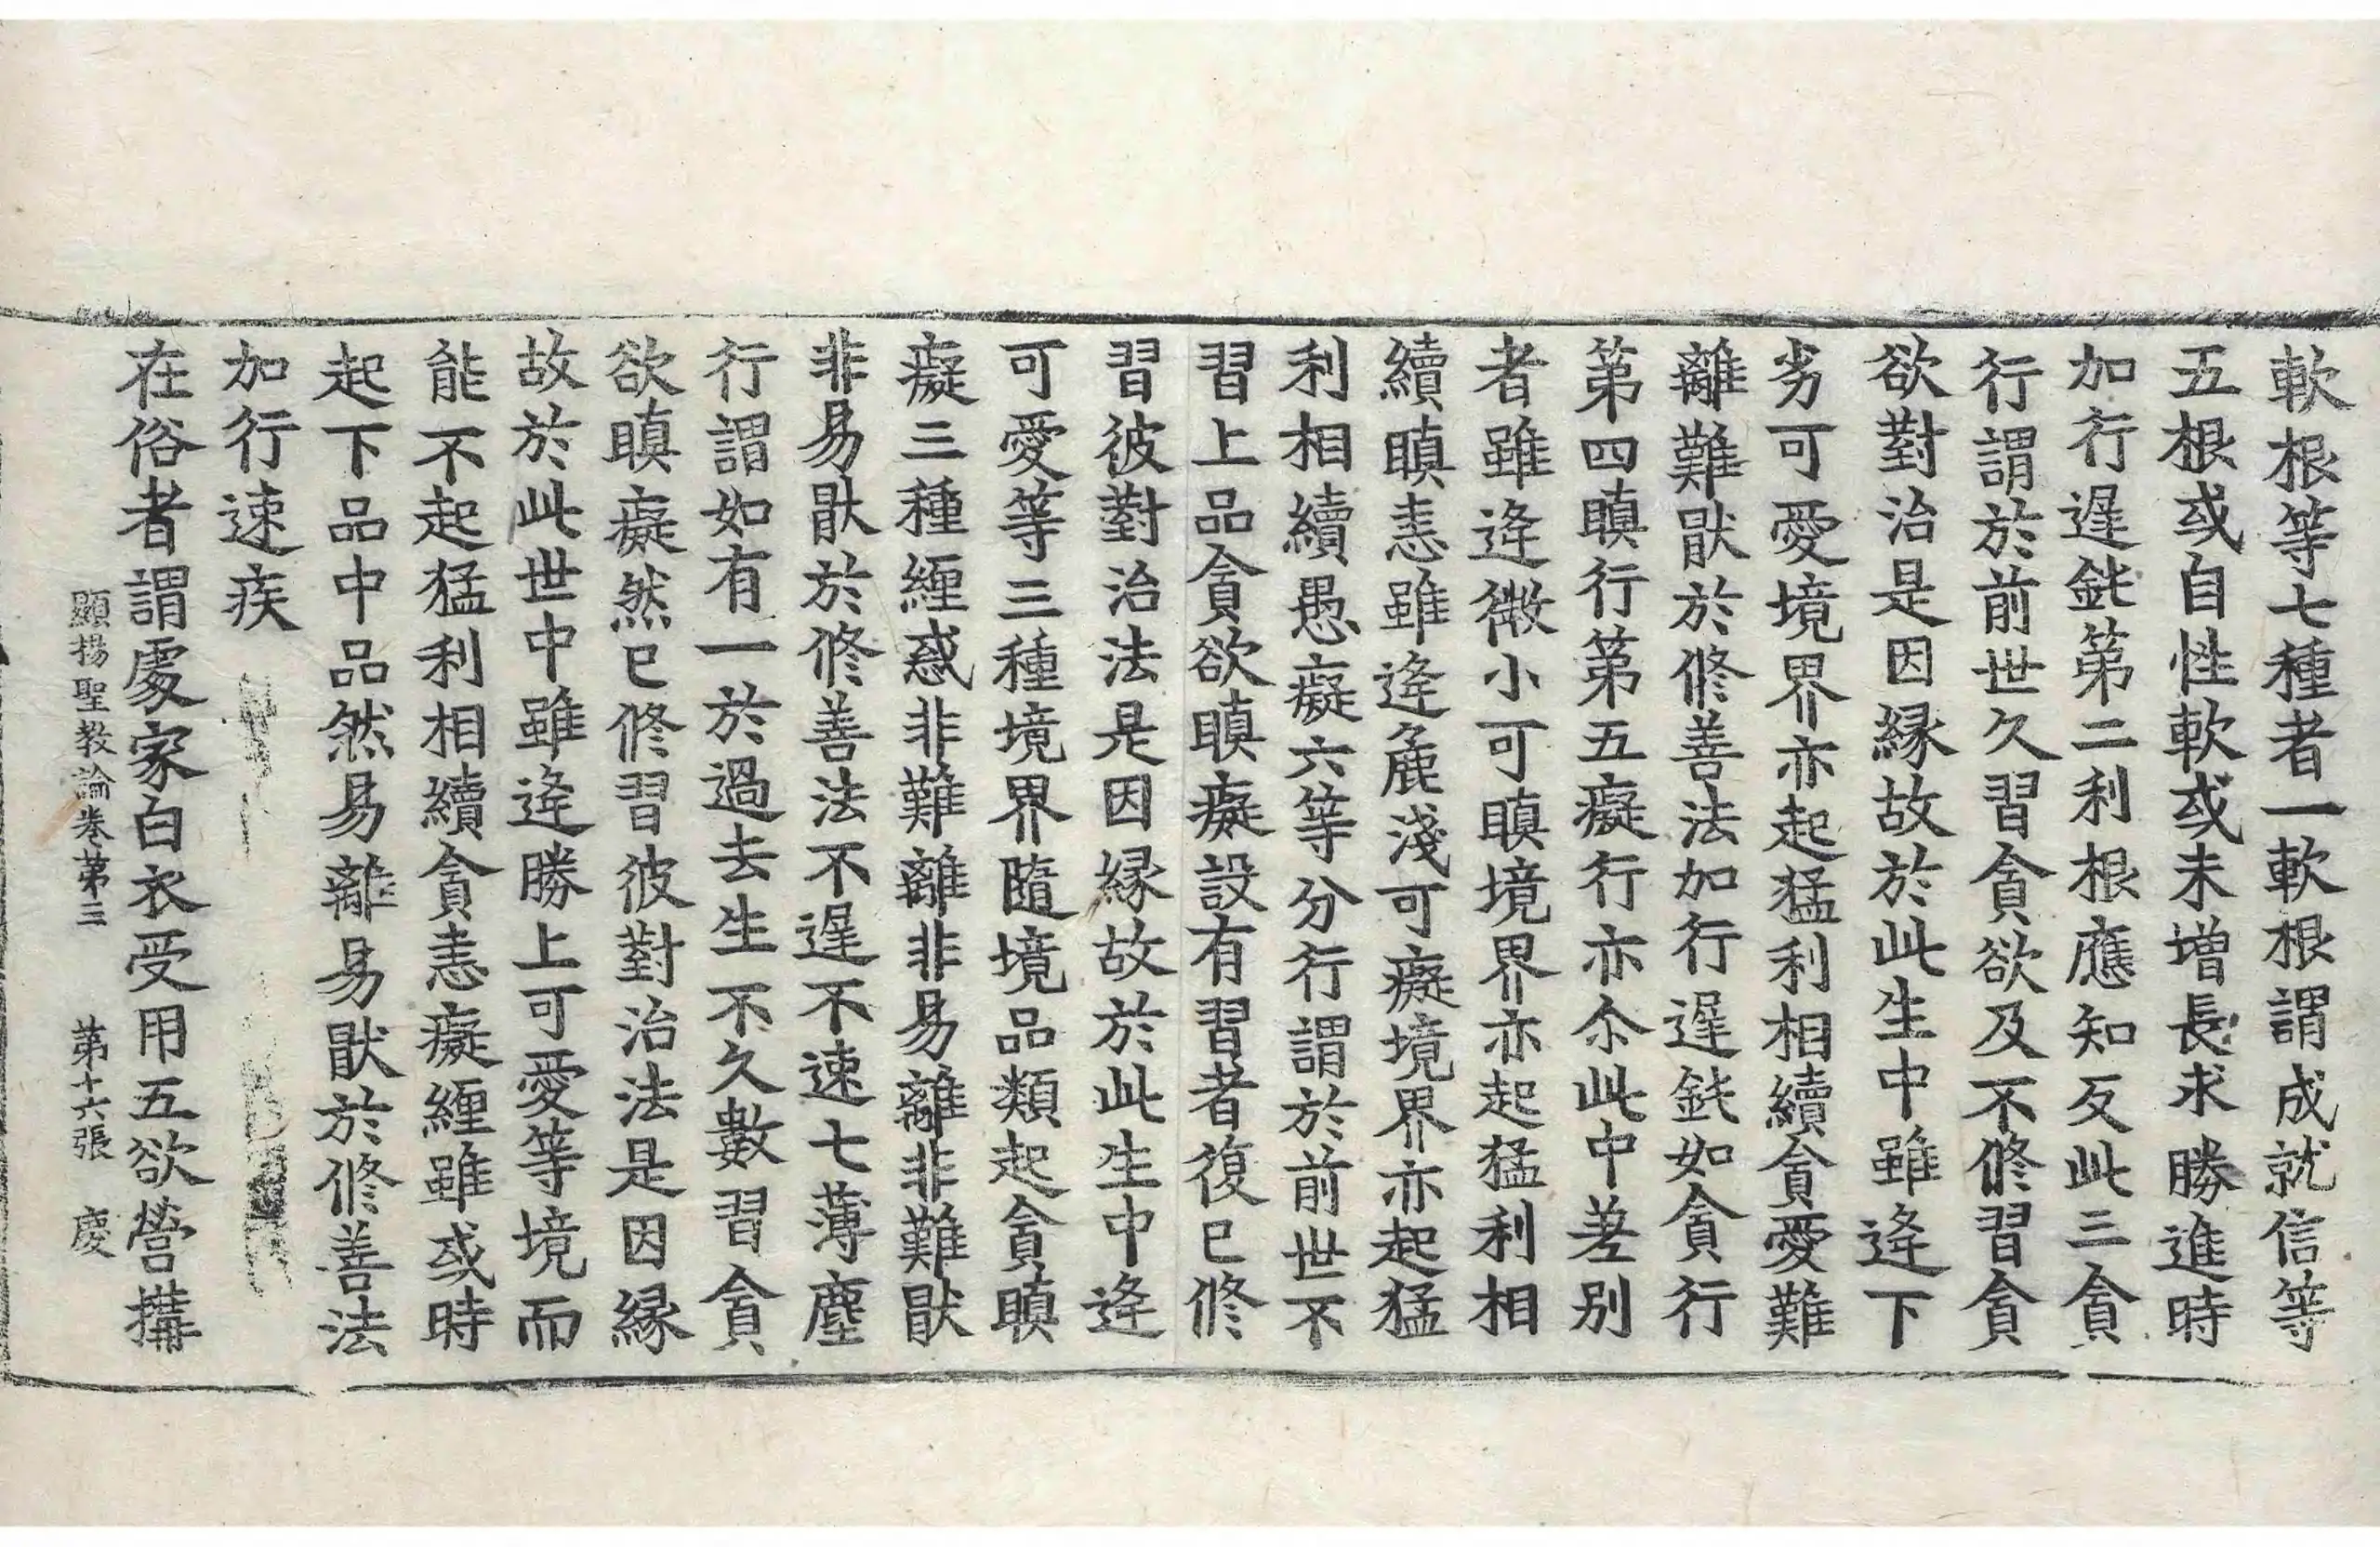 軟根等七種者一軟根謂成就信等
五根或自性軟或未增長求勝進時
加行遲鈍第二利根應知反此三貪
行謂於前世久習貪欲及不修習貪
欲對治是因緣故於此生中雖逢下
劣可愛境界亦起猛利相續貪愛難
離難猒於修善法加行遲鈍如貪行
第四瞋行第五癡行亦尒此中差別
者雖逢微小可瞋境界亦起猛利相
續瞋恚雖逢麁淺可癡境界亦起猛
利相續愚癡六等分行謂於前世不
習上品貪欲瞋癡設有習者復已修
習彼對治法是因緣故於此生中逢
可愛等三種境界隨境品類起貪瞋
癡三種纏惑非難離非易離非難猒
非易猒於修善法不遲不速七薄塵
行謂如有一於過去生不久數習貪
欲瞋癡然已修習彼對治法是因緣
故於此世中雖逢勝上可愛等境而
能不起猛利相續貪恚癡纏雖或時
起下品中品然易離易猒於修善法
加行速疾
在俗者謂處家白衣受用五欲營搆
顯揚聖教論卷第三 第十六張 慶